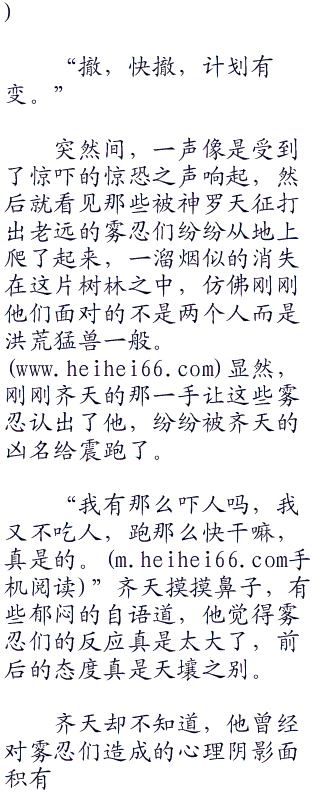 )
“撤，快撤，计划有
变。”
突然间，一声像是受到
了惊吓的惊恐之声响起，然
后就看见那些被神罗天征打
出老远的雾忍们纷纷从地上
爬了起来，一溜烟似的消失
在这片树林之中，仿佛刚刚
他们面对的不是两个人而是
洪荒猛兽一般。
(www.heihei66.com)显然，
刚刚齐天的那一手让这些雾
忍认出了他，纷纷被齐天的
凶名给震跑了。
“我有那么吓人吗，我
又不吃人，跑那么快干嘛，
真是的。(m.heihei66.com手
机阅读)”齐天摸摸鼻子，有
些郁闷的自语道，他觉得雾
忍们的反应真是太大了，前
后的态度真是天壤之别。
齐天却不知道，他曾经
对雾忍们造成的心理阴影面
积有